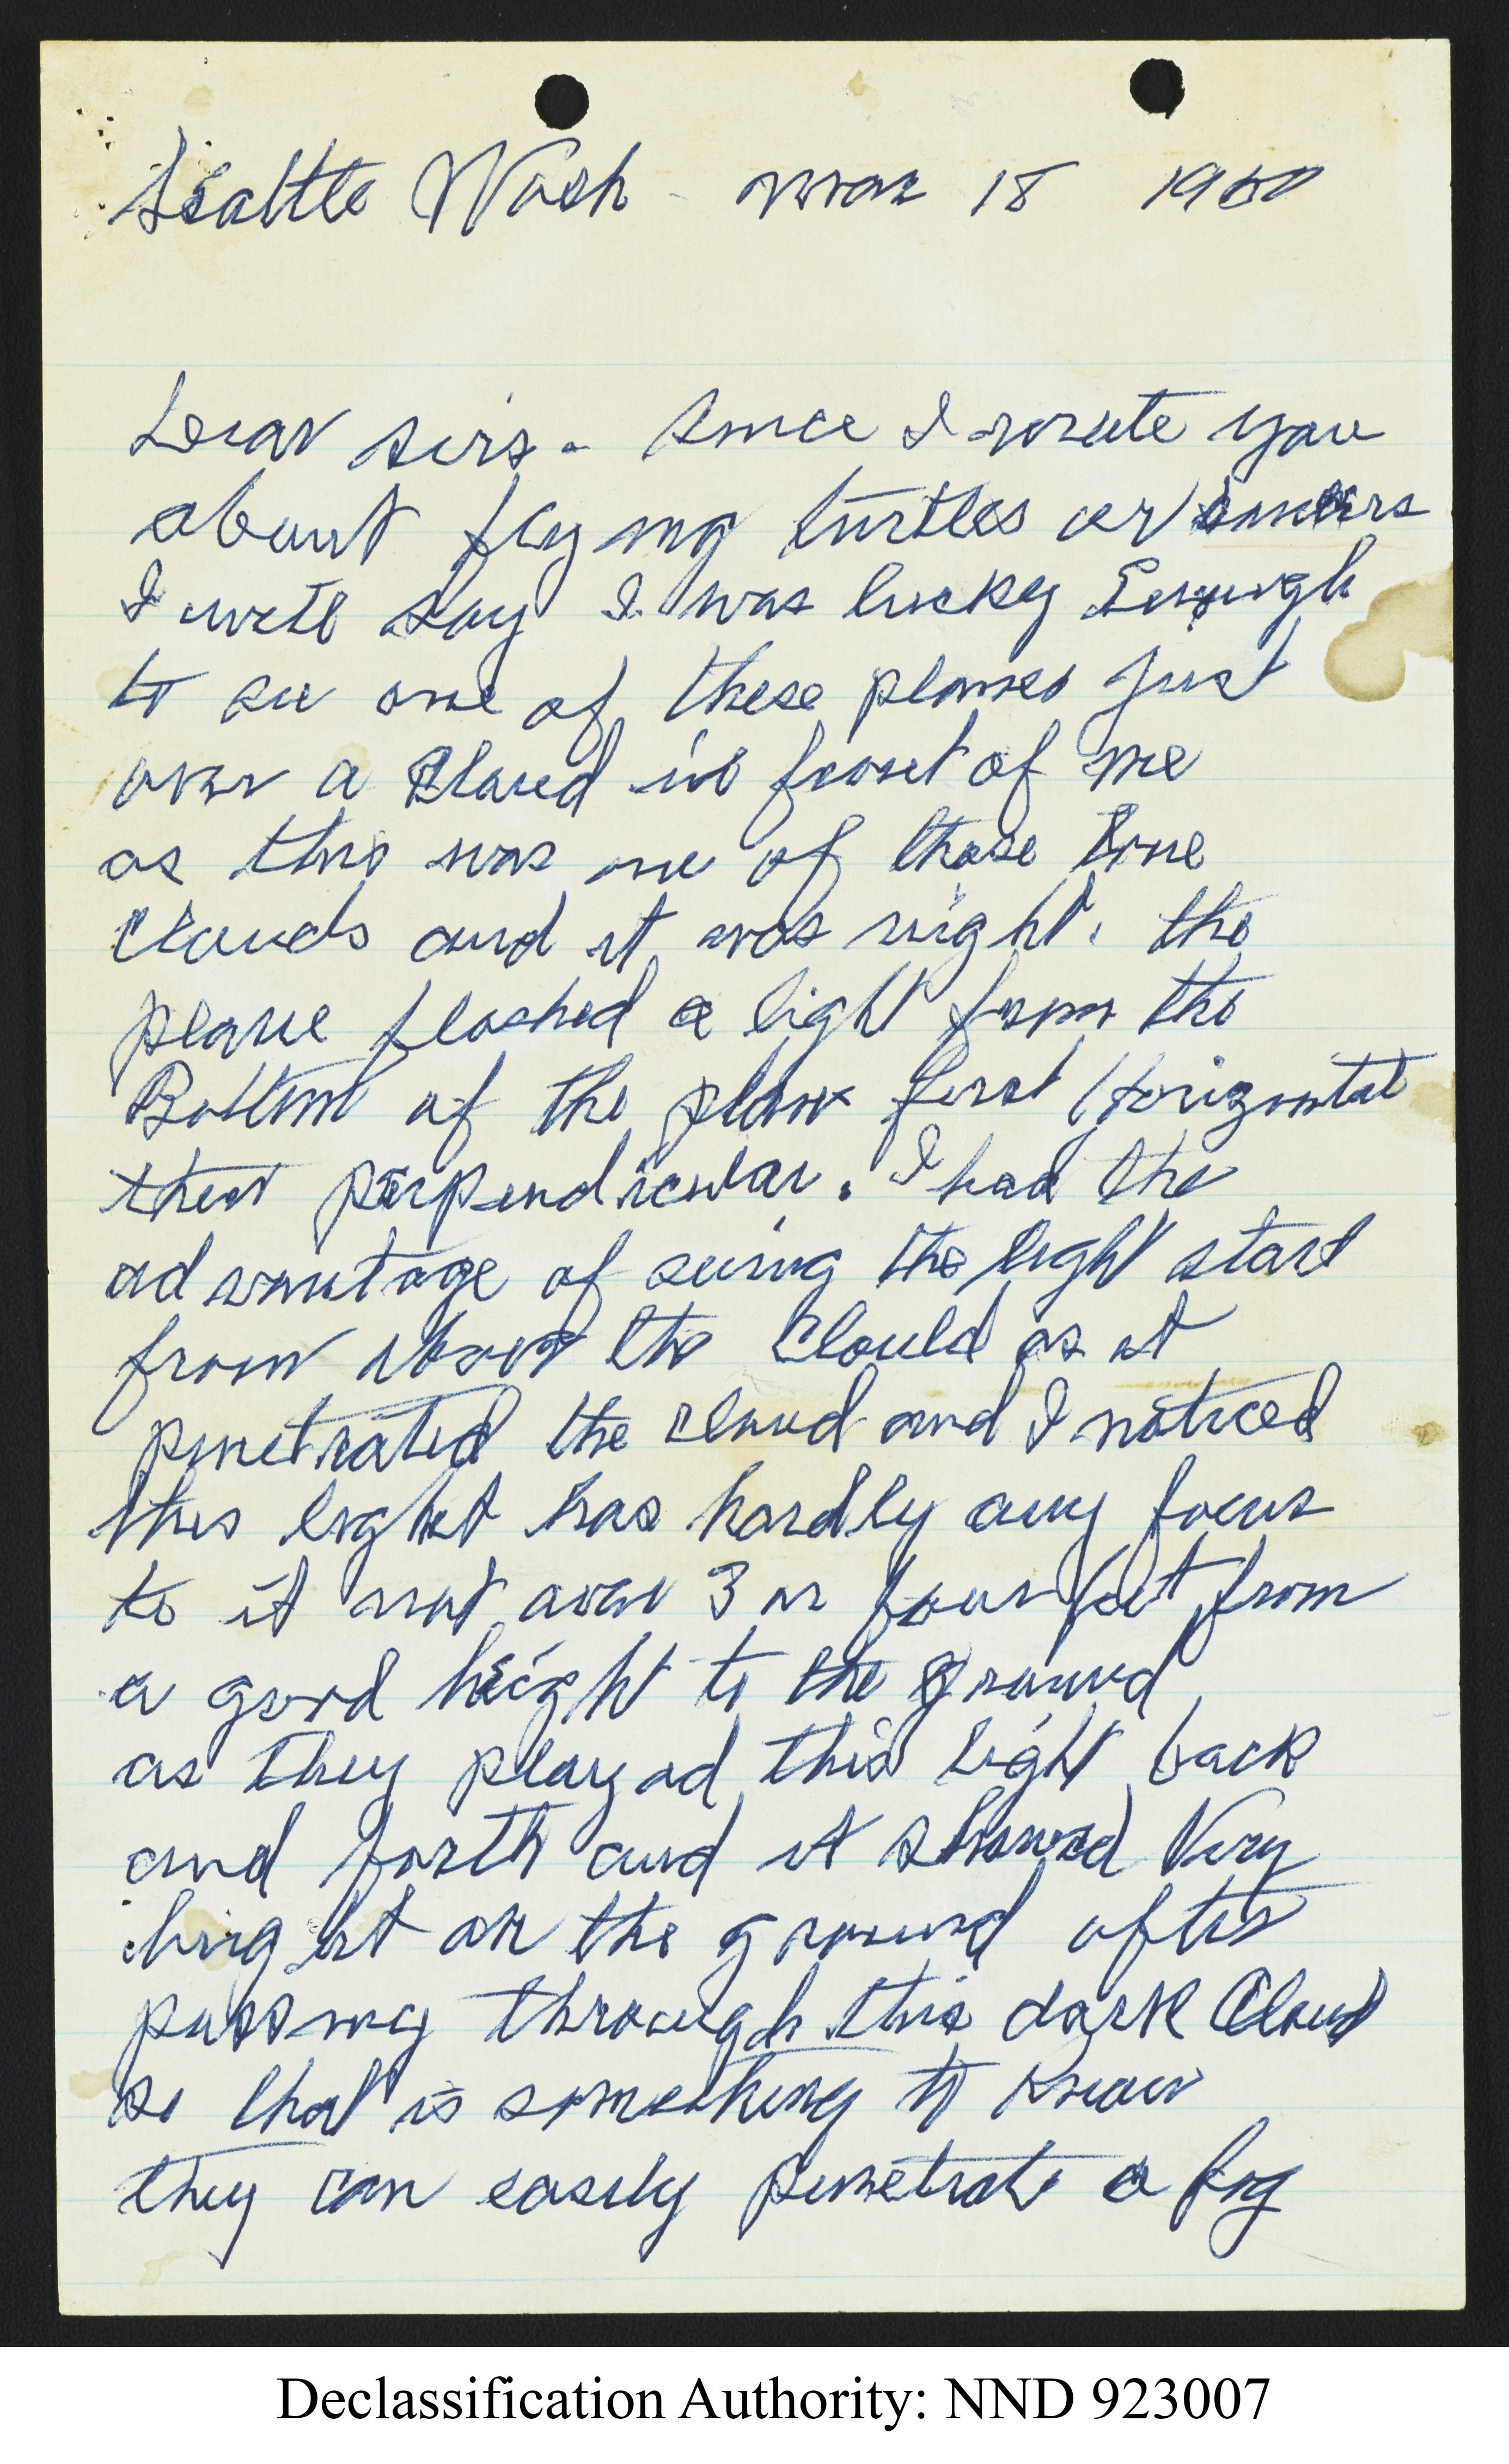 Seattle Wash - Mar 18 1950
Dear sirs - Since I wrote you
about flying turtles or saucers
I will say I was lucky Enough
to see one of these planes just
over a Cloud in front of me
as this was one of those
Clouds and it was night. the
plane flashed a light from the
Bottom of the plane first Horizontal
then perpendicular. I had the
advantage of seeing the light start
from above the Cloud as it
penetrated the cloud and I noticed
this light has hardly any focus
to it not over 3 or four feet from
a good height to the ground
as they played this light back
and forth and it showed Very
bright on the ground after
passing through this dark Cloud
so that is something to know
they can easily penetrate a fog
Declassification Authority: NND 923007